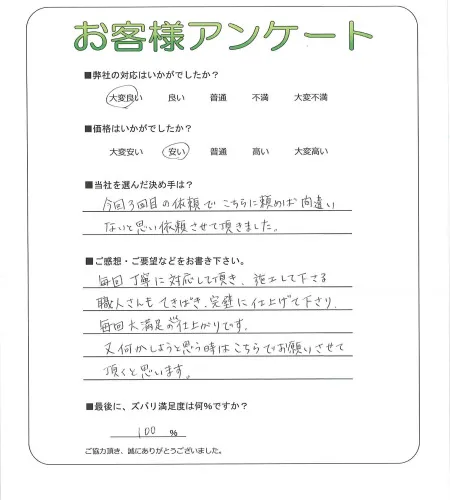 お客様アンケート
■弊社の対応はいかがでしたか？
大変良い 良い 普通 不満 大変不満
■価格はいかがでしたか？
大変安い 安い 普通 高い 大変高い
■当社を選んだ決め手は？
今回3回目の依頼でこちらに頼めば間違い
ないと思い依頼させて頂きました。
■ご感想・ご要望などをお書き下さい。
毎回丁寧に対応して頂き、施工して下さる
職人さんもてきぱき、完璧に仕上げて下さり、
毎回大満足の仕上がりです。
又何かしようと思う時はこちらでお願いさせて
頂くと思います。
■最後に、ズバリ満足度は何%ですか？
100 %
ご協力頂き、誠にありがとうございました。